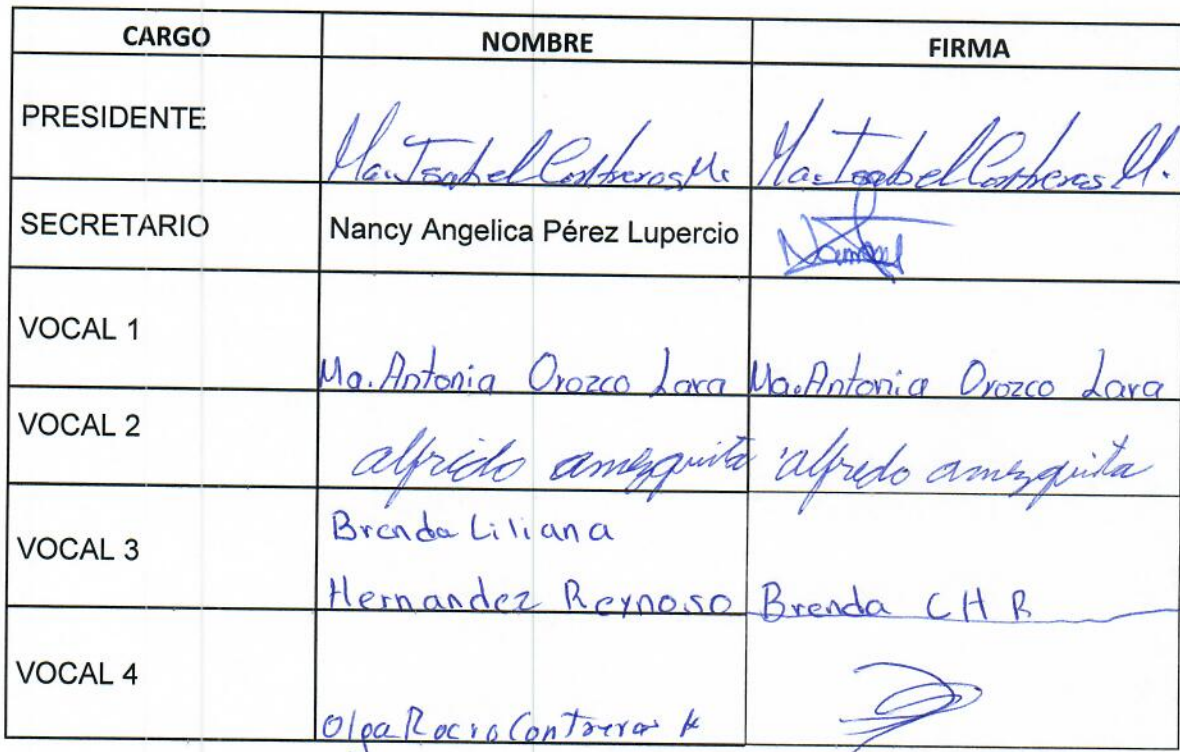 CARGO NOMBRE FIRMA
PRESIDENTE Ma. Isabel Contreras M. Ma. Isabel Contreras M.
SECRETARIO Nancy Angelica Pérez Lupercio
VOCAL 1 Ma. Antonia Orozco Lara Ma. Antonia Orozco Lara
VOCAL 2 alfredo amezquita alfredo amezquita
Brenda Liliana
VOCAL 3
Hernandez Reynoso Brenda L H R
VOCAL 4
Olga Rocio Contreras